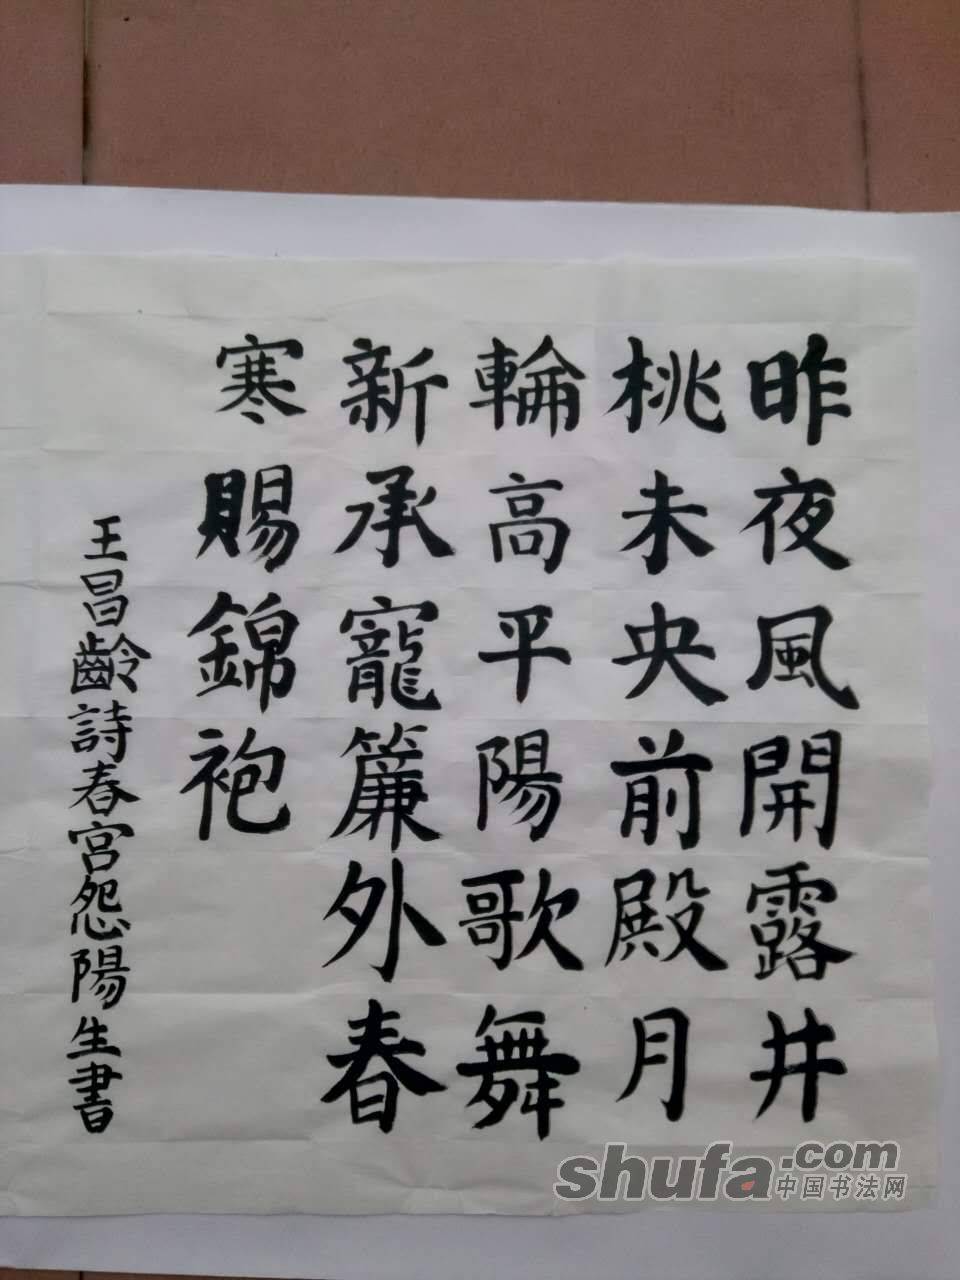 昨夜風開露井
桃未央前殿月
輪高平陽歌舞
新承寵簾外春
寒賜錦袍
王昌齡詩春宮怨陽生書
shufa.com
中国书法网